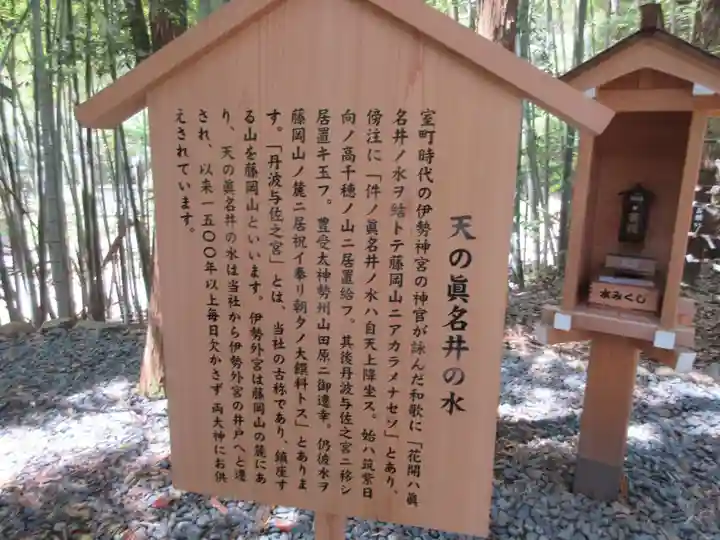 天の眞名井の水
室町時代の伊勢神宮の神官が詠んだ和歌に「花開ハ眞
名井ノ水ヲ結トテ藤岡山ニアカラメナセソ」とあり、
傍注に「件ノ眞名井ノ水ハ自天上降坐ス。始ハ筑紫日
向ノ高千穂ノ山ニ居置給フ。其後丹波与佐之宮ニ移シ
居置キ玉フ。豊受太神勢州山田原ニ御遷幸。仍彼水ヲ
藤岡山ノ麓ニ居祝イ奉リ朝夕ノ大饌料トス」とありま
す。「丹波与佐之宮」とは、当社の古称であり、鎮座す
る山を藤岡山といいます。伊勢外宮は藤岡山の麓にあ
り、天の眞名井の水は当社から伊勢外宮の井戸へと遷
され、以来一五〇〇年以上毎日欠かさず両大神にお供
えされています。
水みくじ